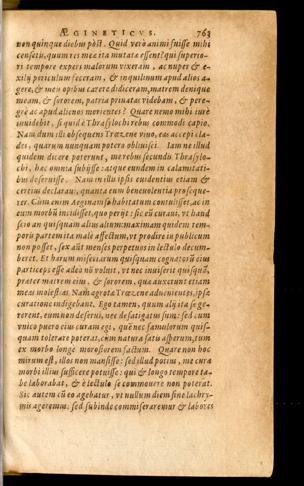 ÆGINETICVS. 763
non quinque diebus pòst. Quid verò animi fuisse mihi
censetis, quum res mea ita mutata essent? qui superio-
ri tempore expers malorum vixeram, ac nuper & e-
xilij periculum feceram, & inquilinum apud alios a-
gere, & meis opibus carere didiceram, matrem denique
meam, & sororem, patria priuatas videbam, & pere-
grè ac apud alienos mœrentes? Quare nemo mihi iure
inuidebit, si quid è Thrasylochi rebus commodi capio.
Nam dum illi obsequens Trœzene viuo, eas accepi cla-
des, quarum nunquam potero obliuisci. Iam ne illud
quidem dicere poterunt, me rebus secundis Thrasylo-
chi, hac omnia subijsse: atque eundem in calamitati-
bus deseruisse. Nam in illis ipsis euidentius etiam &
certius declaraui, quanta eum beneuolentia proseque-
rer. Cùm enim Æginam se habitatum contulisset, ac in
eum morbũ incidisset, quo perijt: sic eũ curaui, vt haud
scio an quisquam alius alium: maximam quidem tem-
poris partem ita malè affectum, vt prodire in publicum
non posset, sex aũt menses perpetuos in lectulo decum-
beret. Et harum miseriarum quisquam cognatorũ eius
particeps esse adeò nõ voluit, vt nec inuiserit quisquã,
præter matrem eius, & sororem, quæ auxerunt etiam
meas molestias. Nam ægrotæ Trœzene aduenientes, ipsæ
curatione indigebant. Ego tamen, quum alij ita se ge-
rerent, eum non deserui, nec defatigatus sum: sed cum
vnico puero eius curam egi, quũ nec famulorum quis-
quam tolerare poterat, cùm natura satis asperum, tum
ex morbo longè morosiorem factum. Quare non hoc
mirum est, illos non mansisse: sed illud potius, me cura
morbi illius sufficere potuisse: qui & longo tempore ta-
be laborabat, & è lectulo se commouere non poterat.
Sic autem cũ eo agebatur, vt nullum diem sine lachry-
mis ageremus: sed subinde commiseraremur & labores